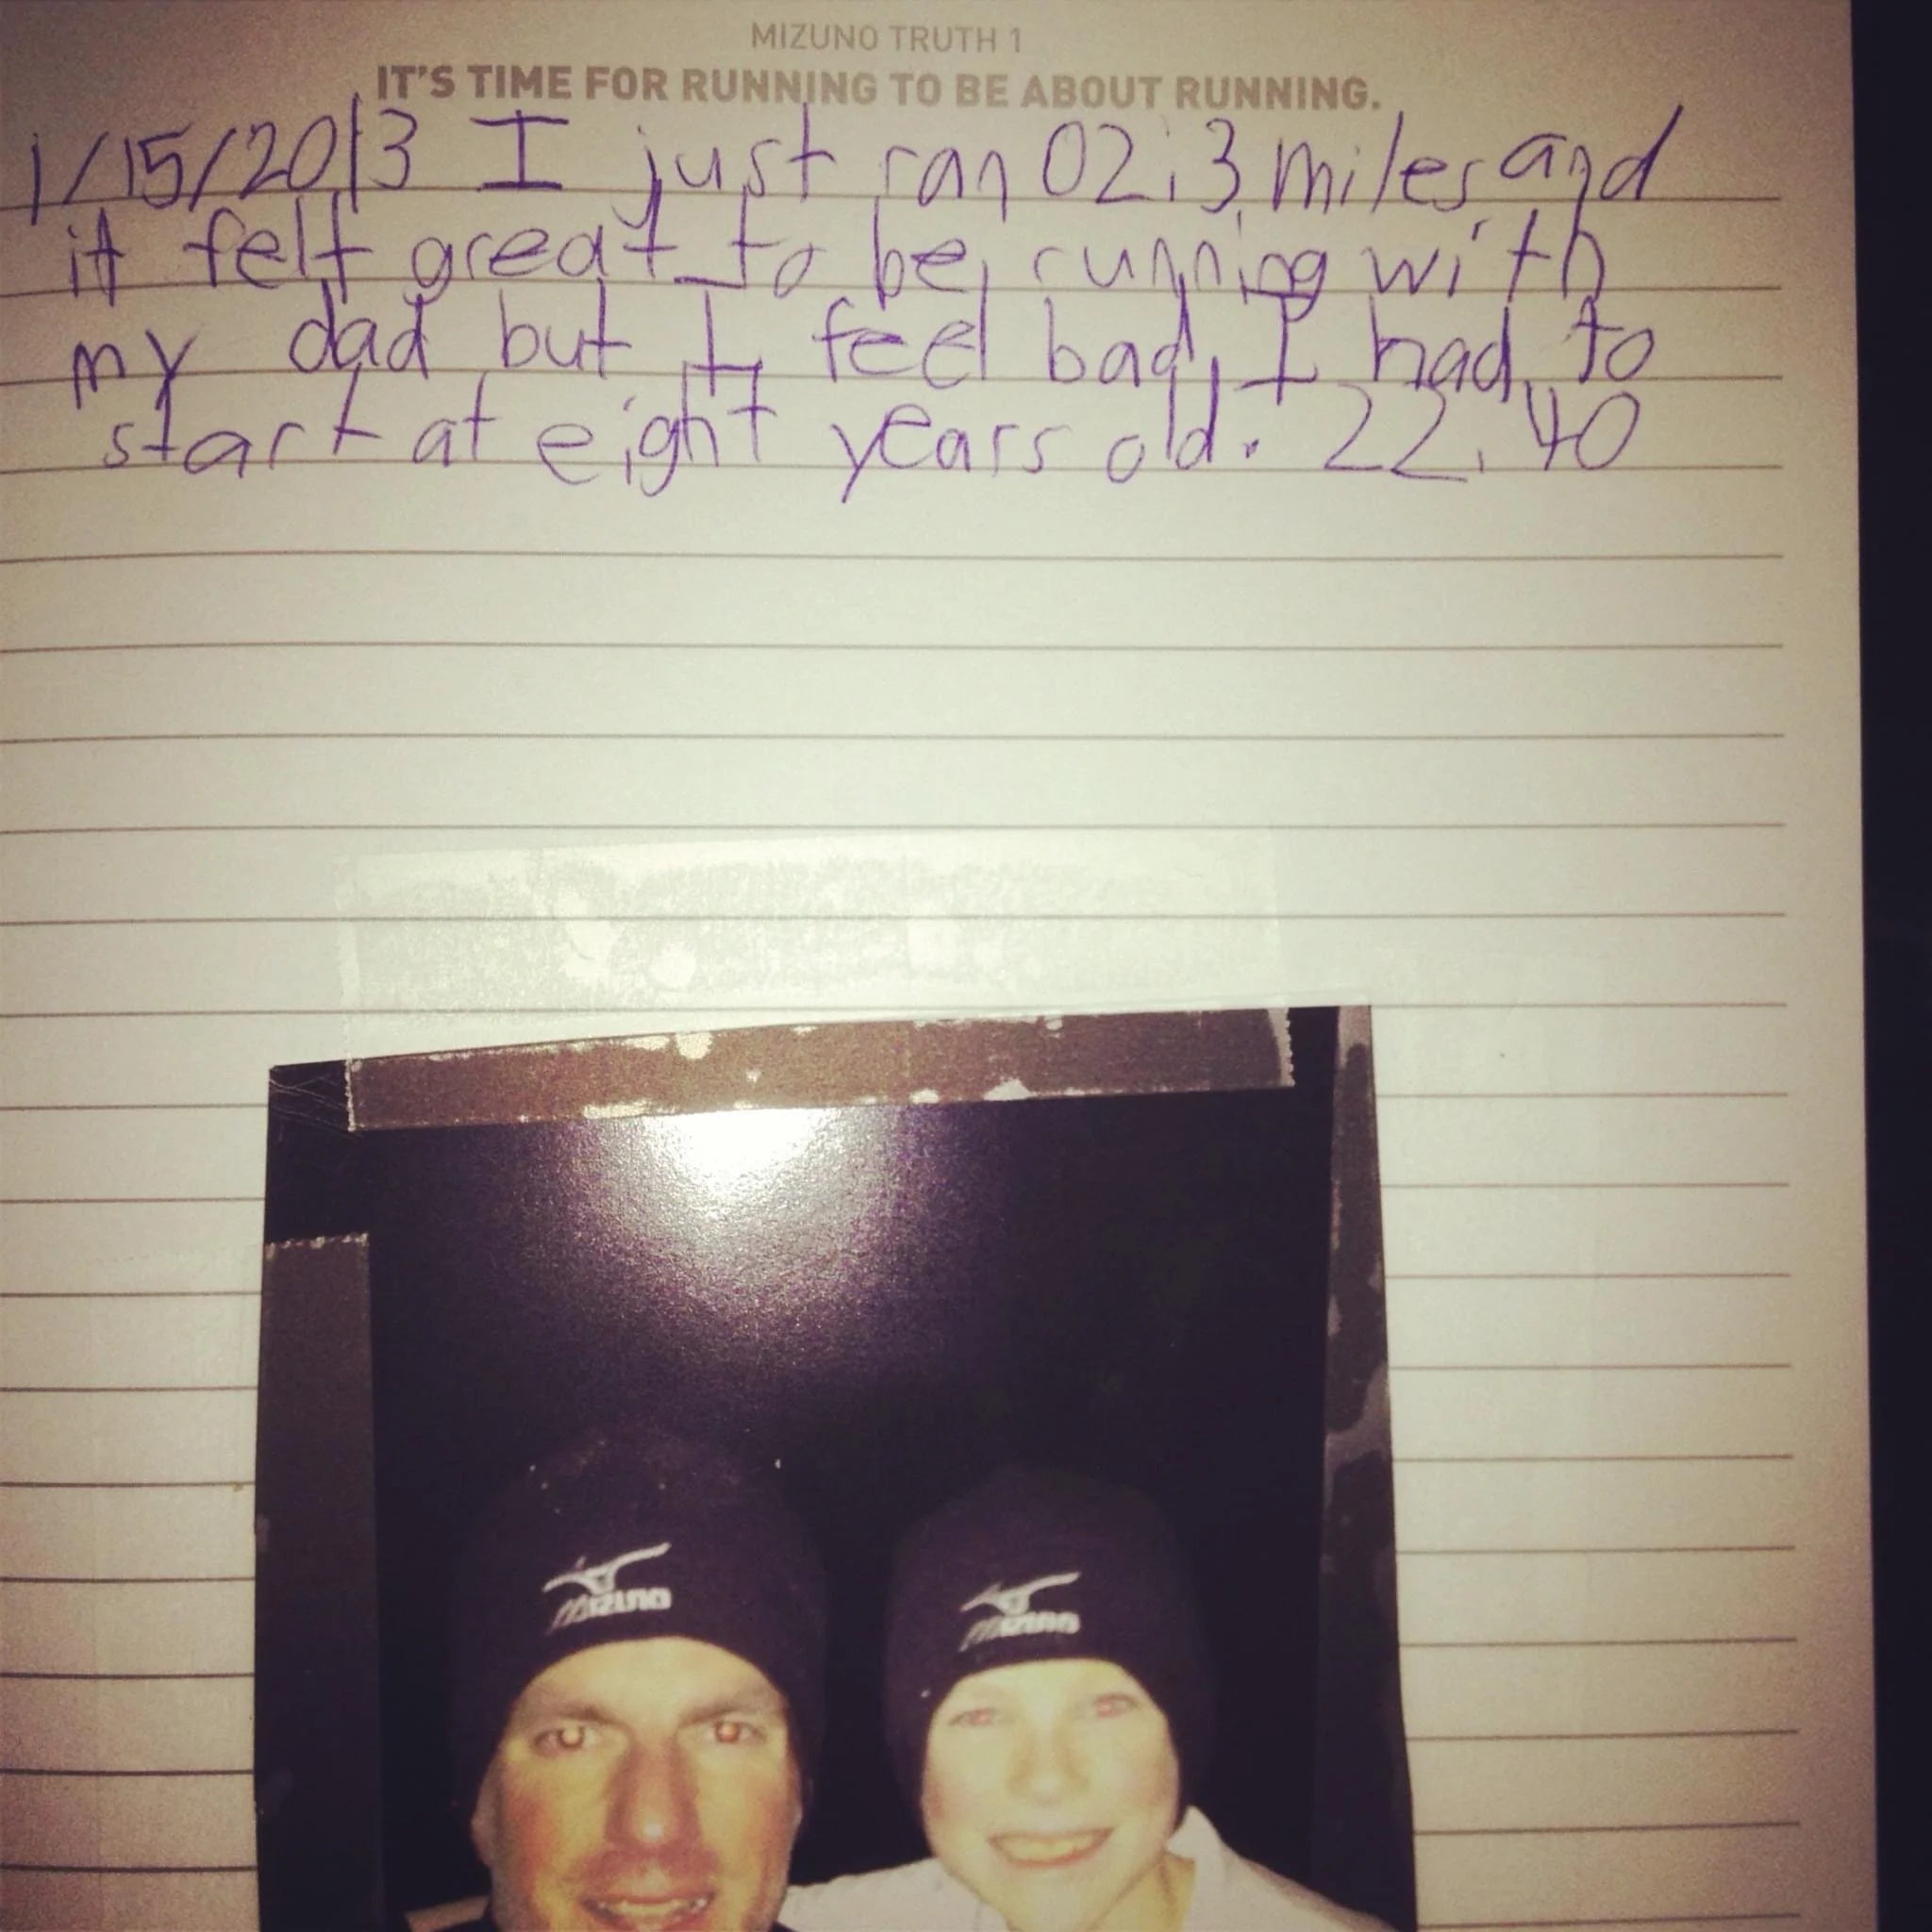 MIZUNO TRUTH 1
IT'S TIME FOR RUNNING TO BE ABOUT RUNNING.
1/15/2013 I just ran 02.3 miles and
it felt great to be running with
my dad but I feel bad I had to
start at eight years old. 22.40
MIZUNO
MIZUNO